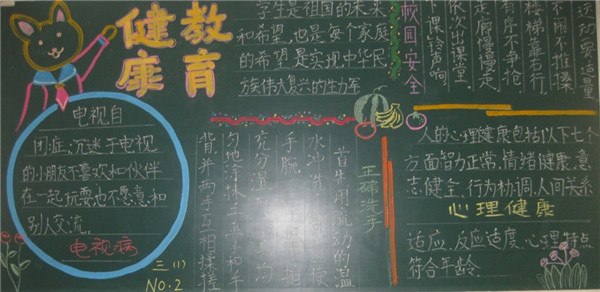 健康
教育
学生是祖国的未来
和希望,也是每个家庭
的希望,是实现中华民
族伟大复兴的生力军
校园安全
下课铃声响
依次出课堂
走廊慢慢走
有序不争抢
楼梯靠右行
不推搡
运动要适量
电视自
闭症:沉迷于电视
的小朋友不喜欢和伙伴
在一起玩耍也不愿意和
别人交流。
电视病
三(1)
NO.2
正确洗手
首先用流动的温
水冲洗 使
手腕 手 指
充分湿 均
匀地涂抹 和手
背并两手互相揉搓
人的心理健康包括以下七个
方面智力正常,情绪健康,意
志健全,行为协调,人间关系
心理健康
适应,反应适度,心理特点
符合年龄.